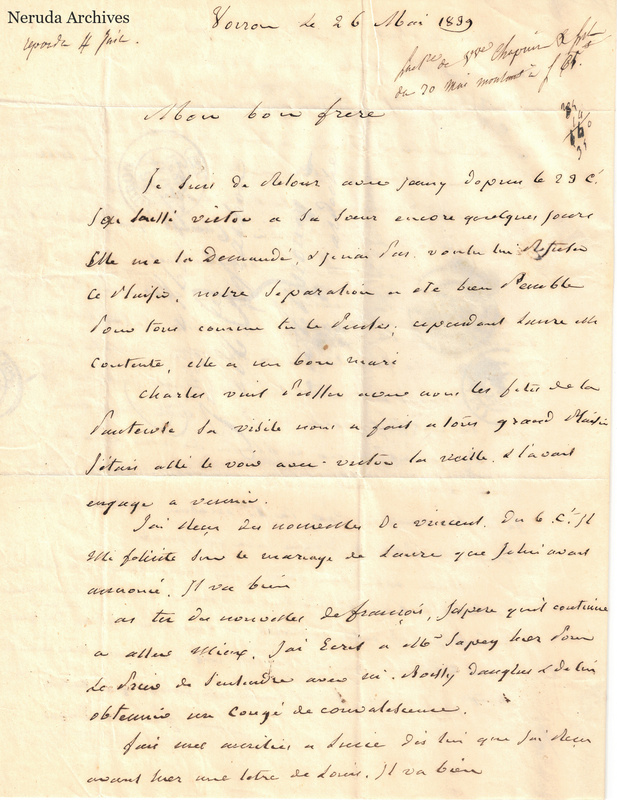 Neruda Archives
Voiron le 26 Mai 1839
repondu 4 Juin.
fact.re de V.ve Chapuis & fils
du 20 Mai montant à f
Mon bon frere
Je suis de Retour avec jenny depuis le 23 C.t
J'ai laissé victor a sa sœur encore quelques jours
Elle me l'a Demandé, & je n'ai pas voulu lui Refuser
ce Plaisir, notre separation a eté bien Penible
Pour tous comme tu le Pense, cependant Laure est
contente, elle a un bon mari
Charles vint Passer avec nous les fetes de la
Pentecote sa visite nous a fait a tous grand Plaisir
J'étais allé le voir avec victor la veille. & l'avait
engagé a venir.
J'ai Reçu des nouvelles de vincent. du 6 C.t Il
me felicite sur le mariage de Laure que Je lui avait
annoncé. Il va bien
as tu des nouvelles de françois, J'espere qu'il continue
a aller mieux. J'ai Ecrit a M.r Sapey hier Pour
Le Prier de S'entendre avec M. Boissy Danglas & de lui
obtenir un Congé de convalescence.
fais mes amitiés a Lucie dis lui que J'ai Reçu
avant hier une letre de Louis. Il va bien